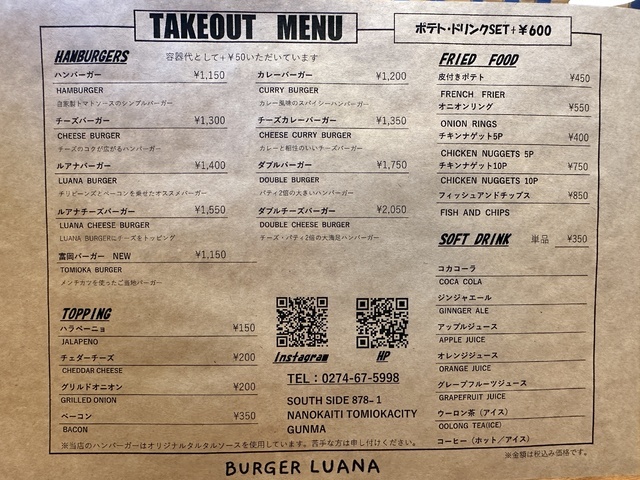 TAKEOUT MENU
ポテト・ドリンクSET+¥600
HAMBURGERS
容器代として+¥50いただいています
ハンバーガー ¥1,150
HAMBURGER
自家製トマトソースのシンプルバーガー
チーズバーガー ¥1,300
CHEESE BURGER
チーズのコクが広がるハンバーガー
ルアナバーガー ¥1,400
LUANA BURGER
チリビーンズとベーコンを乗せたオススメバーガー
ルアナチーズバーガー ¥1,550
LUANA CHEESE BURGER
LUANA BURGERにチーズをトッピング
富岡バーガー NEW ¥1,150
TOMIOKA BURGER
メンチカツを使ったご当地バーガー
カレーバーガー ¥1,200
CURRY BURGER
カレー風味のスパイシーハンバーガー
チーズカレーバーガー ¥1,350
CHEESE CURRY BURGER
カレーと相性のいいチーズバーガー
ダブルバーガー ¥1,750
DOUBLE BURGER
パティ2倍の大きいハンバーガー
ダブルチーズバーガー ¥2,050
DOUBLE CHEESE BURGER
チーズ・パティ2倍の大満足ハンバーガー
TOPPING
ハラペーニョ ¥150
JALAPENO
チェダーチーズ ¥200
CHEDDAR CHEESE
グリルドオニオン ¥200
GRILLED ONION
ベーコン ¥350
BACON
Instagram
HP
TEL：0274-67-5998
SOUTH SIDE 878-1
NANOKAITI TOMIOKACITY
GUNMA
FRIED FOOD
皮付きポテト ¥450
FRENCH FRIER
オニオンリング ¥550
ONION RINGS
チキンナゲット5P ¥400
CHICKEN NUGGETS 5P
チキンナゲット10P ¥750
CHICKEN NUGGETS 10P
フィッシュアンドチップス ¥850
FISH AND CHIPS
SOFT DRINK 単品 ¥350
コカコーラ
COCA COLA
ジンジャエール
GINNGER ALE
アップルジュース
APPLE JUICE
オレンジジュース
ORANGE JUICE
グレープフルーツジュース
GRAPEFRUIT JUICE
ウーロン茶（アイス）
OOLONG TEA(ICE)
コーヒー（ホット／アイス）
※当店のハンバーガーはオリジナルタルタルソースを使用しています。苦手な方は申し付けください。
※金額は税込み価格です。
BURGER LUANA